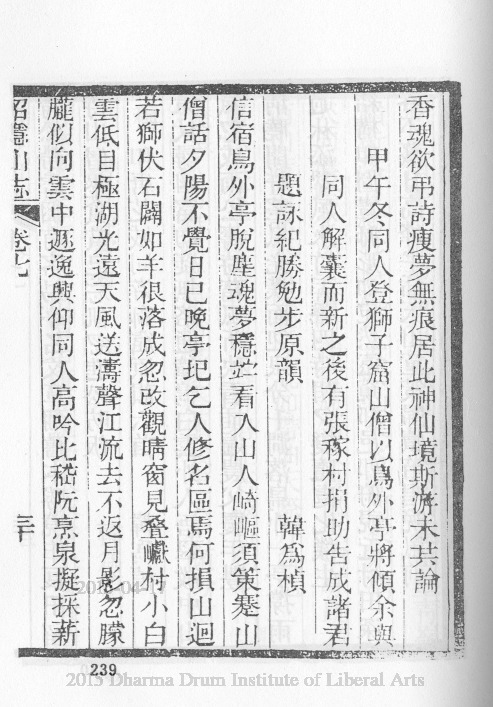 香魂欲弔詩瘦夢無痕居此神仙境斯游未共論
甲午冬同人登獅子窟山僧以鳥外亭將傾余與
同人解囊而新之後有張稼村捐助告成諸君
題詠紀勝勉步原韻
韓為楨
信宿鳥外亭脫塵魂夢穩竚看入山人崎嶇須策蹇山
僧話夕陽不覺日已晚亭圯乞人修名區焉何損山迴
若獅伏石闢如羊很落成忽改觀晴窗見疊巘村小白
雲低目極湖光遠天風送濤聲江流去不返月影忽朦
朧似向雲中遯逸興仰同人高吟比嵇阮烹泉擬採薪
招隱山志
卷七
二十
239
2015-04-17
2015 Dharma Drum Institute of Liberal Arts